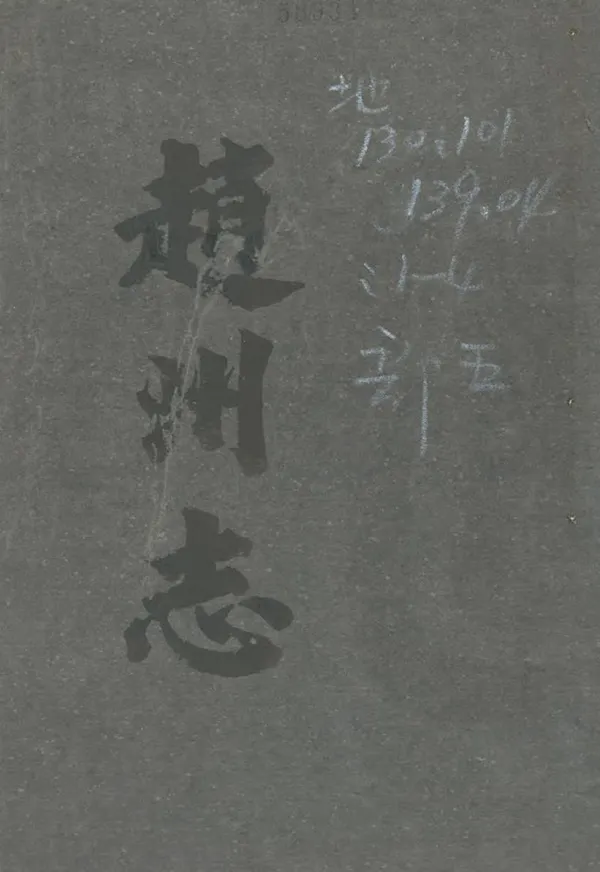 趙州志
地
130.101
139.04
:1-4
部五